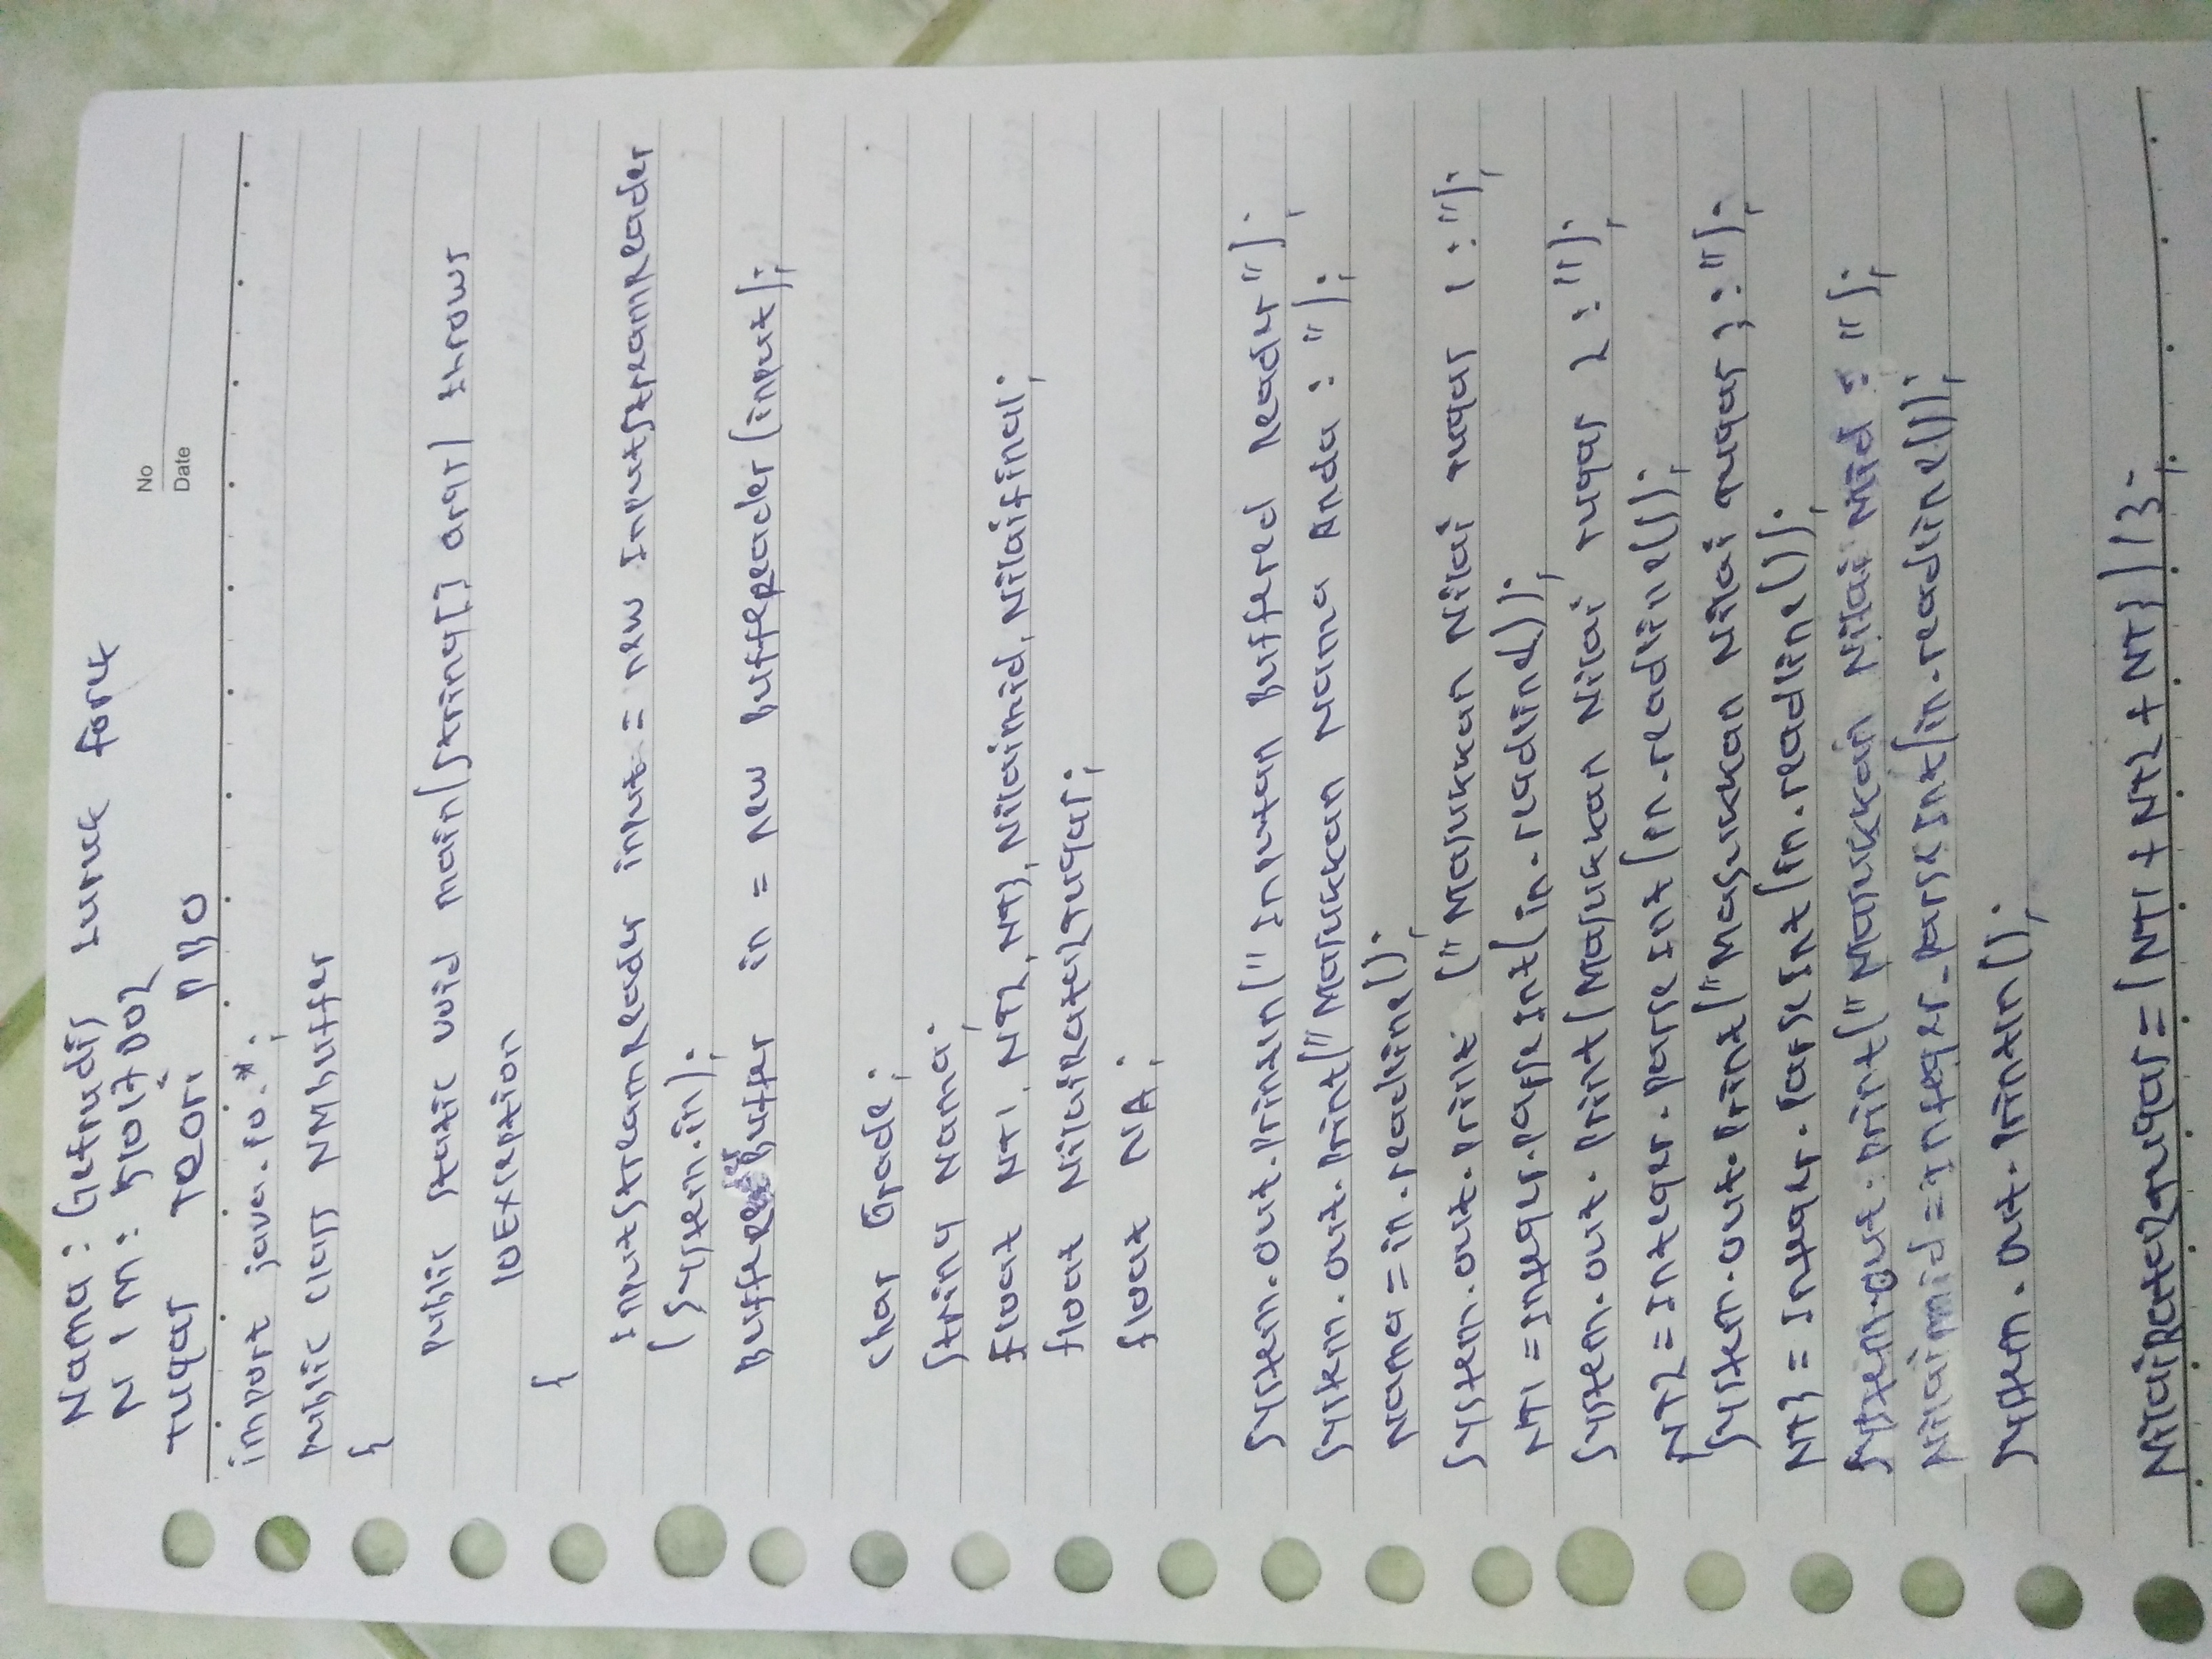 No
Date
Nama : Getrudis Luruk Foruk
NIM : 51017002
Tugas Teori PBO
import java.io.*;
public class NMbuffer
{
public static void main(String[] args) throws
IOException
{
InputStreamReader input = new InputStreamReader
(System.in);
Buffer in = new BuffeReader(input);
char Grade;
String Nama;
float NT1, NT2, NT3, Nilaimid, Nilaifinal;
float NilaiRata2Tugas;
float NA;
System.out.println("Inputan Buffered Reader");
System.out.print("Masukkan Nama Anda : ");
Nama = in.readline();
System.out.print ("Masukkan Nilai Tugas 1 : ");
NT1 = Integer.parseInt(in.readline));
System.out.print(Masukkan Nilai Tugas 2 : ");
NT2 = Integer.parseInt(in.readline());
System.out.print("Masukkan Nilai Tugas 3 : ");
NT3 = Integer.parseInt(in.readline());
System.out.print("Masukkan Nilai Mid : ");
Nilaimid = Integer.parseInt(in.readline());
System.out.println();
NilaiRata2Tugas = (NT1 + NT2 + NT3) / 3;